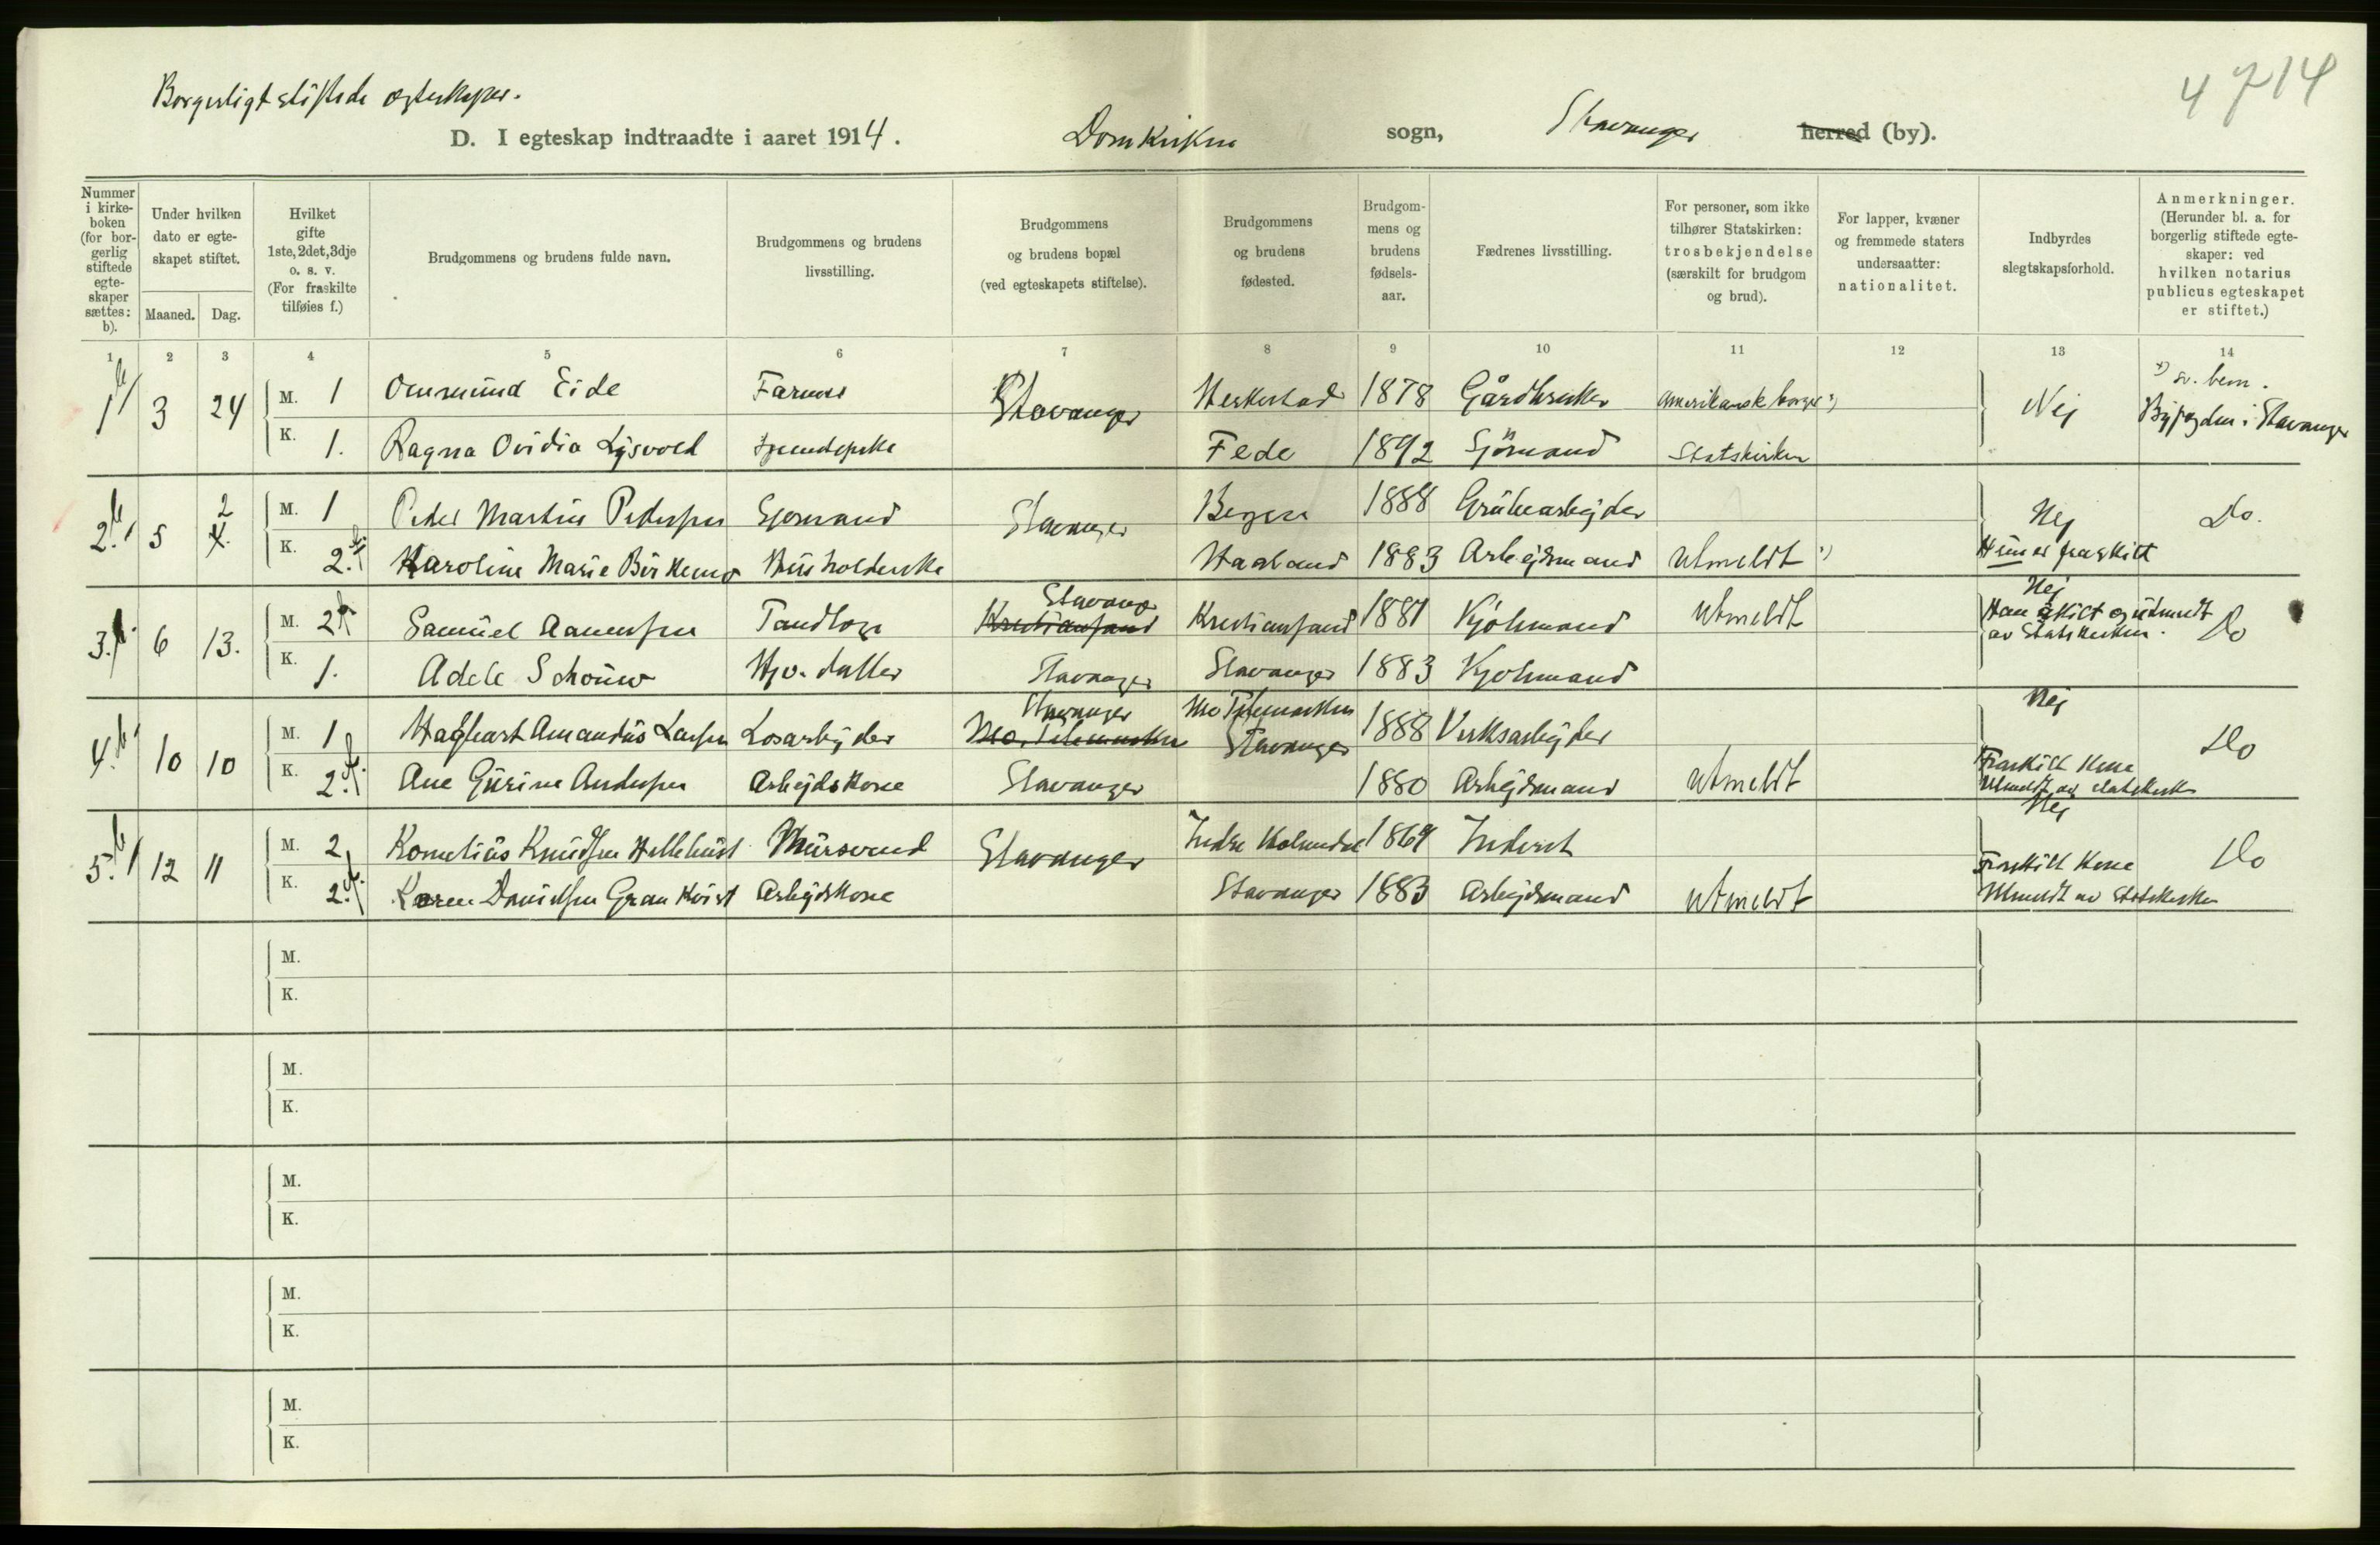 Borgerligt stiftede egteskaper.
4714
D. I egteskap indtraadte i aaret 1914. Domkirken sogn, Stavanger herred (by).
Nummer i kirkeboken (for borgerlig stiftede egteskaper sættes: b).
Under hvilken dato er egteskapet stiftet.
Maaned. Dag.
Hvilket gifte 1ste, 2det, 3dje o. s. v. (For fraskilte tilføies f.)
Brudgommens og brudens fulde navn.
Brudgommens og brudens livsstilling.
Brudgommens og brudens bopæl (ved egteskapets stiftelse).
Brudgommens og brudens fødested.
Brudgommens og brudens fødselsaar.
Fædrenes livsstilling.
For personer, som ikke tilhører Statskirken: trosbekjendelse (særskilt for brudgom og brud).
For lapper, kvæner og fremmede staters undersaatter: nationalitet.
Indbyrdes slegtskapsforhold.
Anmerkninger. (Herunder bl. a. for borgerlig stiftede egteskaper: ved hvilken notarius publicus egteskapet er stiftet.)
1 2 3 4 5 6 7 8 9 10 11 12 13 14
1 b 3 24 M. 1 Ommund Eide Farmer Stavanger Heskestad 1878 Gårdbruker Amerikansk borger Nej Byfogden i Stavanger
K. 1. Ragna Ovidia Lysvold Fede 1892 Sjömand Statskirken
2. b 5 2 4. M. 1 Peder Martin Pedersen Sjomand Stavanger Bergen 1888 Grubearbejder Nej Do.
K. 2. f. Karoline Marie Birkemo Husholderske Haaland 1883 Arbejdsmand Utmeldt Hun er fraskilt
3. b. 6 13. M. 2 f Samuel Aanensen Tandlæge Stavanger Kristiansand Kristiansand 1881 Kjöbmand Utmeldt Nej Han skilt og utmeldt av Statskirken. Do
K. 1. Adele Schouw Hjv. datter Stavanger Stavanger 1883 Kjobmand
4. b. 10 10 M. 1 Haghart Amandus Larsen Losarbejder Stavanger Mo, Telemarken Mo Telemarken 1888 Verksarbejder Nej Do
K. 2. f. Ane Gurine Andersen Arbejdskone Stavanger Stavanger 1880 Arbejdsmand Utmeldt Fraskilt Kone Utmeldt av statskirken
5. b 12 11 M. 2 Kornelius Knudsen Murersvend Stavanger Indre Holmedal 1869 Inderst Nej Do
K. 2. f. Karen Danielsen Gran Kvist Arbejdskone Stavanger 1883 Arbejdsmand Utmeldt Fraskilt Kone Utmeldt av Statskirken
M.
K.
M.
K.
M.
K.
M.
K.
M.
K.